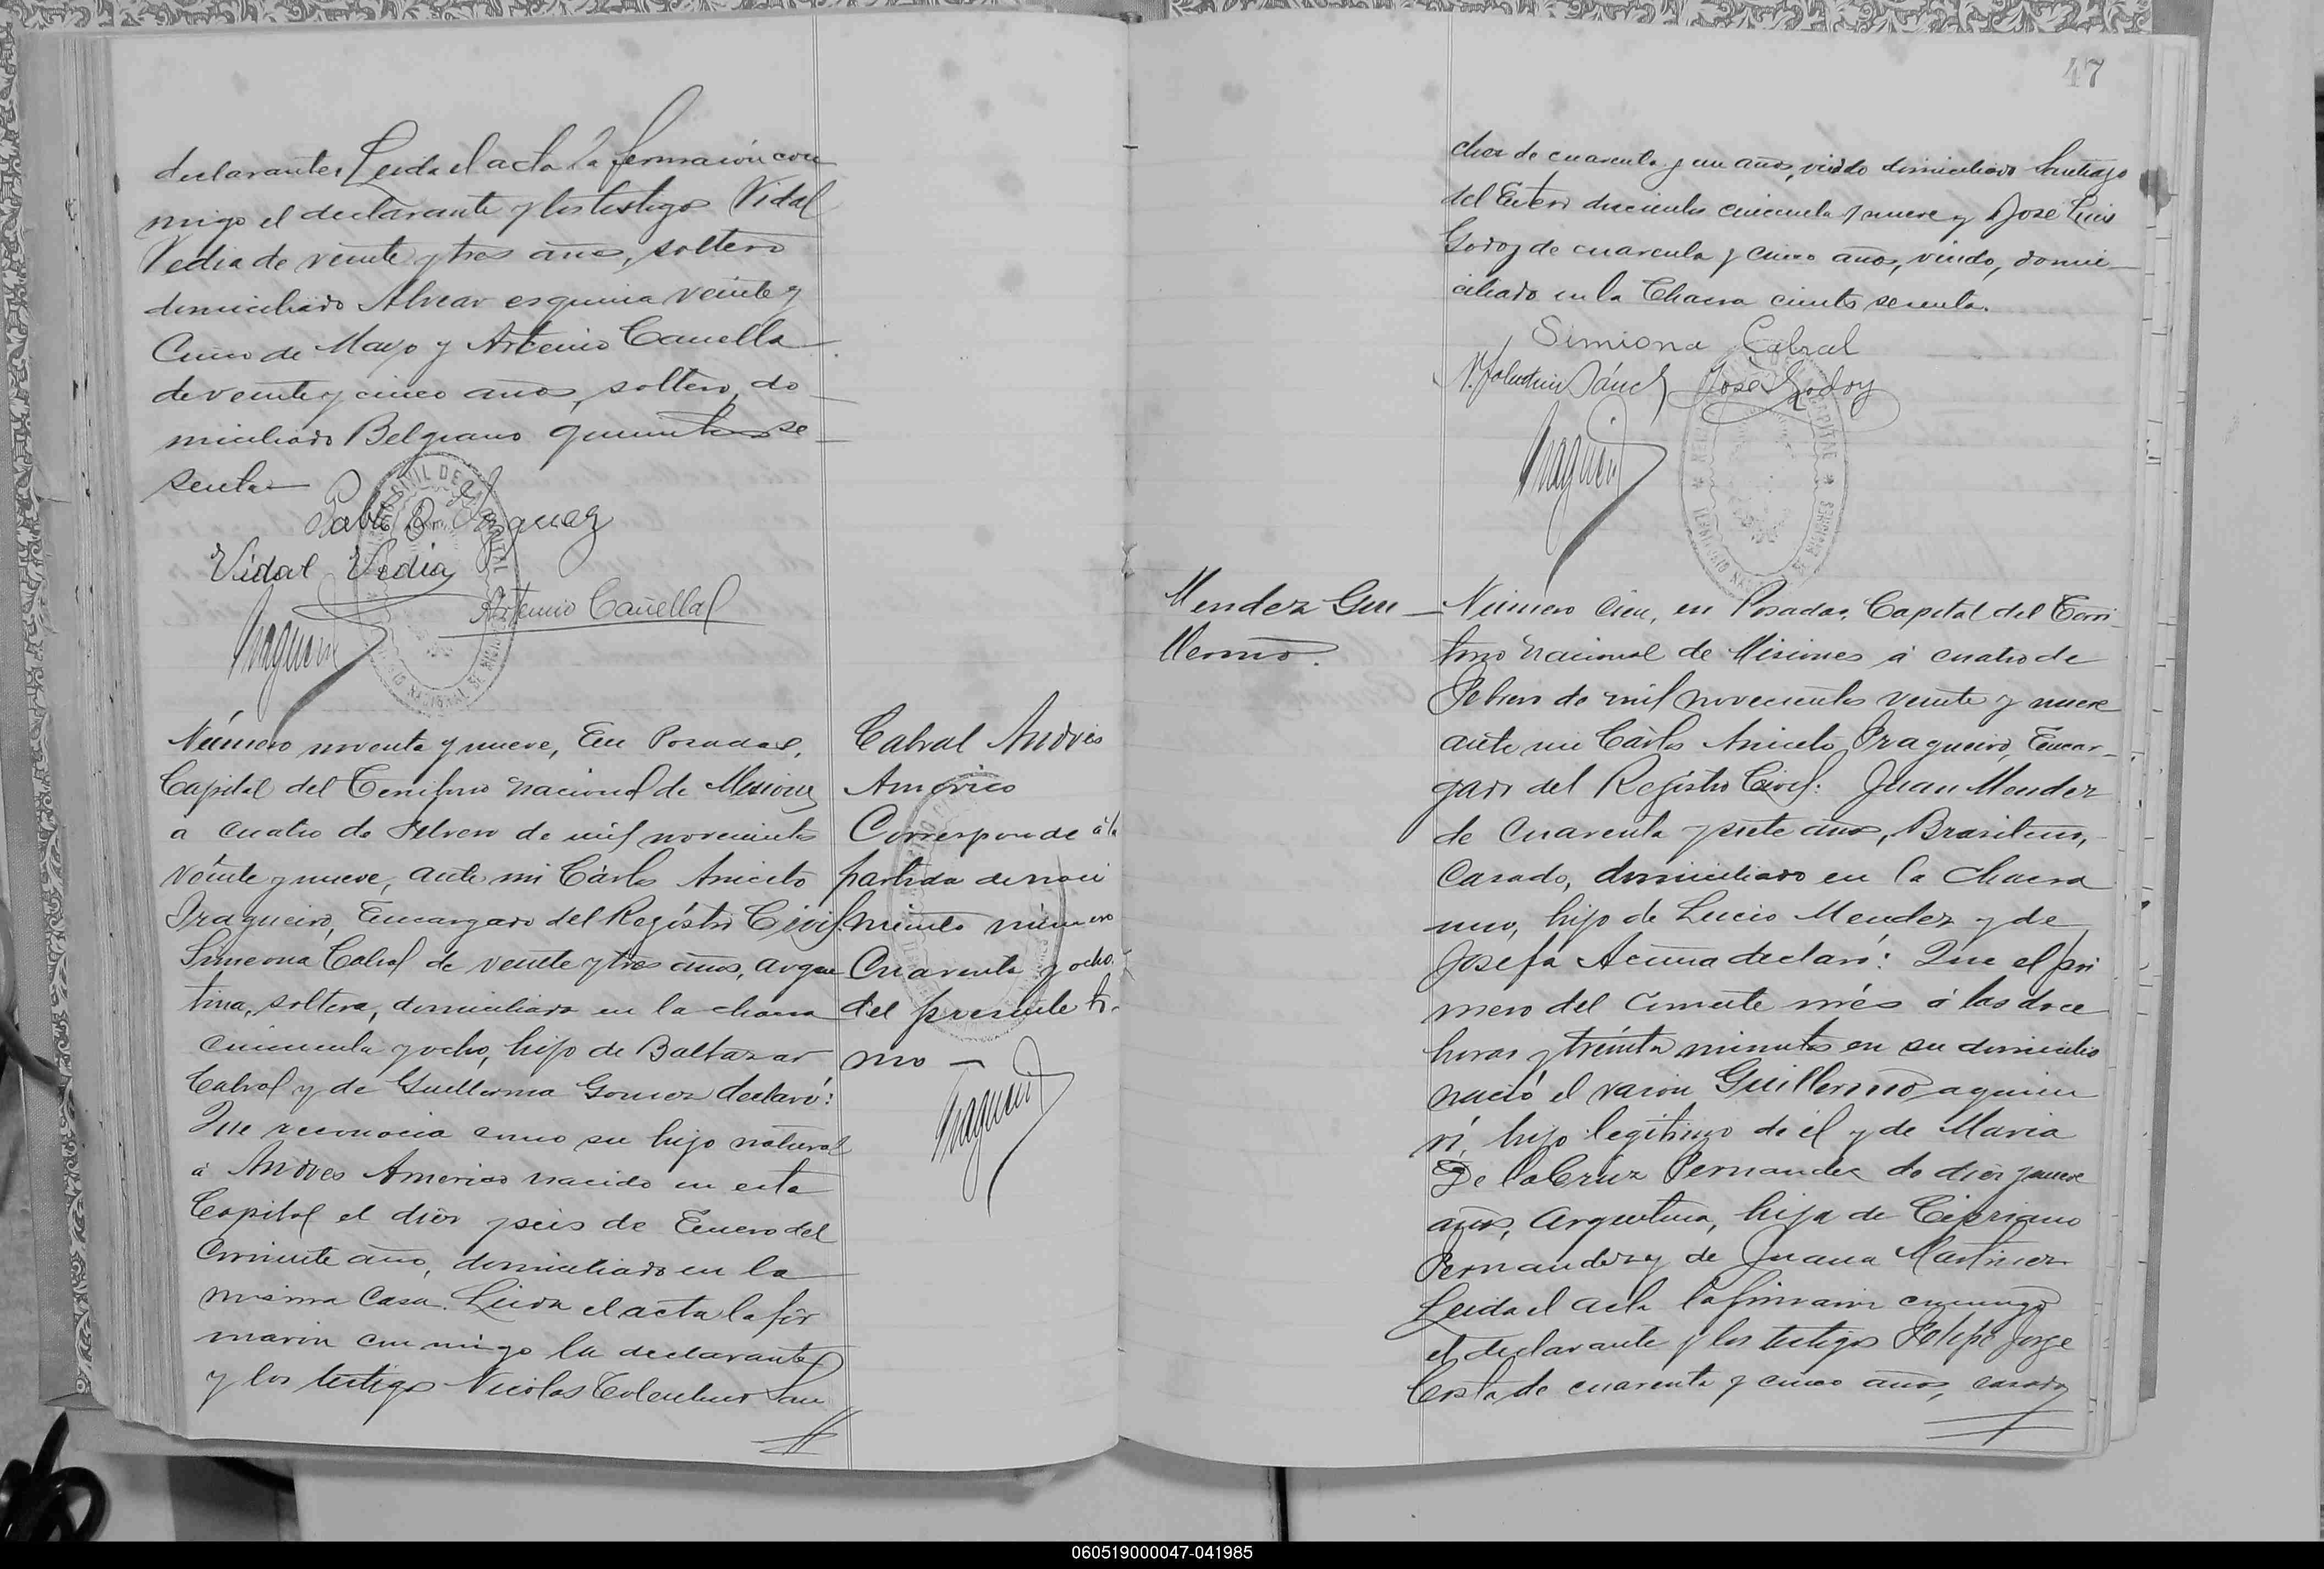 declarante. Leida el acta la firmaron con
migo el declarante y los testigos Vidal
Vedia de veinte y tres años, soltero
domiciliado Alvear esquina veinte y
Cinco de Mayo y Artemio Cauella
de veinte y cinco años, soltero, do
miciliado Belgrano quinientos se
senta
Vidal Vedia
Artemio Cañella
Número noventa y nueve, En Posadas,
Capital del Territorio nacional de Misiones
a cuatro de Febrero de mil novecientos
veinte y nueve, ante mi Cárlos Aniceto
Fragueiro, Encargado del Registro Civil:
Simeona Cabral de veinte y tres años, argen
tina, soltera, domiciliada en la chacra
cincuenta y ocho, hijo de Baltazar
Cabral y de Guillerma Gomez declaró:
Que reconocia como su hijo natural
á Andres Americo nacido en esta
Capital el diez y seis de Enero del
corriente año, domiciliado en la
misma casa. Leida el acta la fir
maron conmigo la declarante
y los testigos Nicolas Tolentino San
Cabral Andrés
Américo
Corresponde á la
partida de naci
miento número
Cuarenta y ocho
del presente to-
mo —
47
chez de cuarenta y un años, viudo domiciliado Santiago
del Estero doscientos cincuenta y nueve y José Luis
Godoy de cuarenta y cinco años, viudo, domi-
ciliado en la Chacra ciento sesenta.
Simiona Cabral
N. Tolentino Sánch José Godoy
Mendez Gui-
llermo.
Número Cien, en Posadas, Capital del Terri-
torio nacional de Misiones á cuatro de
Febrero de mil novecientos veinte y nueve
ante mi Cárlos Aniceto Fragueiro, Encar-
gado del Registro Civil: Juan Mendez
de cuarenta y siete años, Brasilero,
casado, domiciliado en la chacra
uno, hijo de Lucio Mendez y de
Josefa Acuña declaró: Que el pri
mero del corriente més á las doce
horas y treinta minutos en su domicilio
nació el varon Guillermo a quien
vi, hijo legitimo de él y de Maria
De la Cruz Fernandez de diez y nueve
años, Argentina, hija de Cipriano
Fernandez y de Juana Martinez
Leida el acta la firmaron conmigo
el declarante y los testigos Felipe Jorge
Costa de cuarenta y cinco años, casado
060519000047-041985